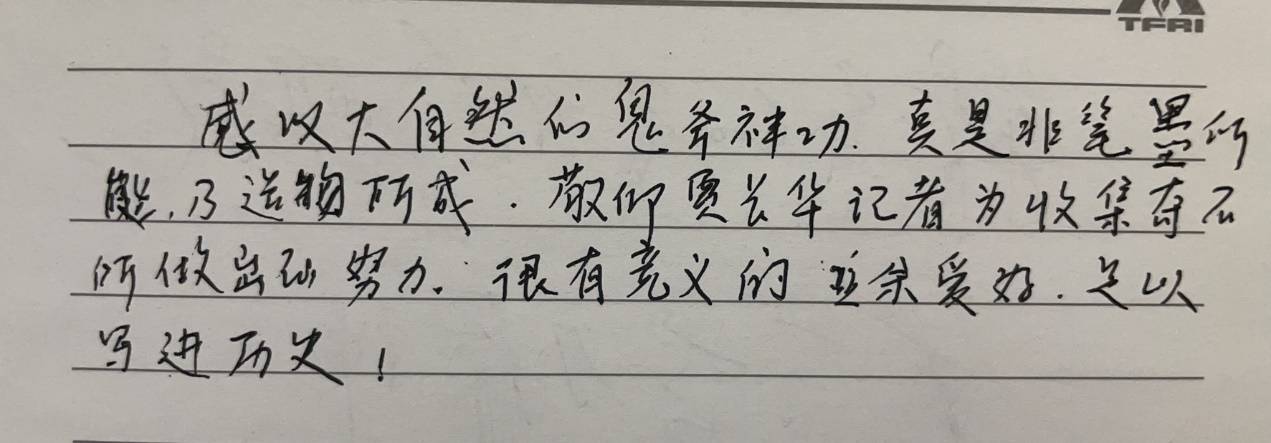 TFRI
感叹大自然的鬼斧神工.真是非笔墨所
能.乃造物所成.敬仰贾长华记者为收集奇石
所做出的努力.很有意义的业余爱好.足以
写进历史!